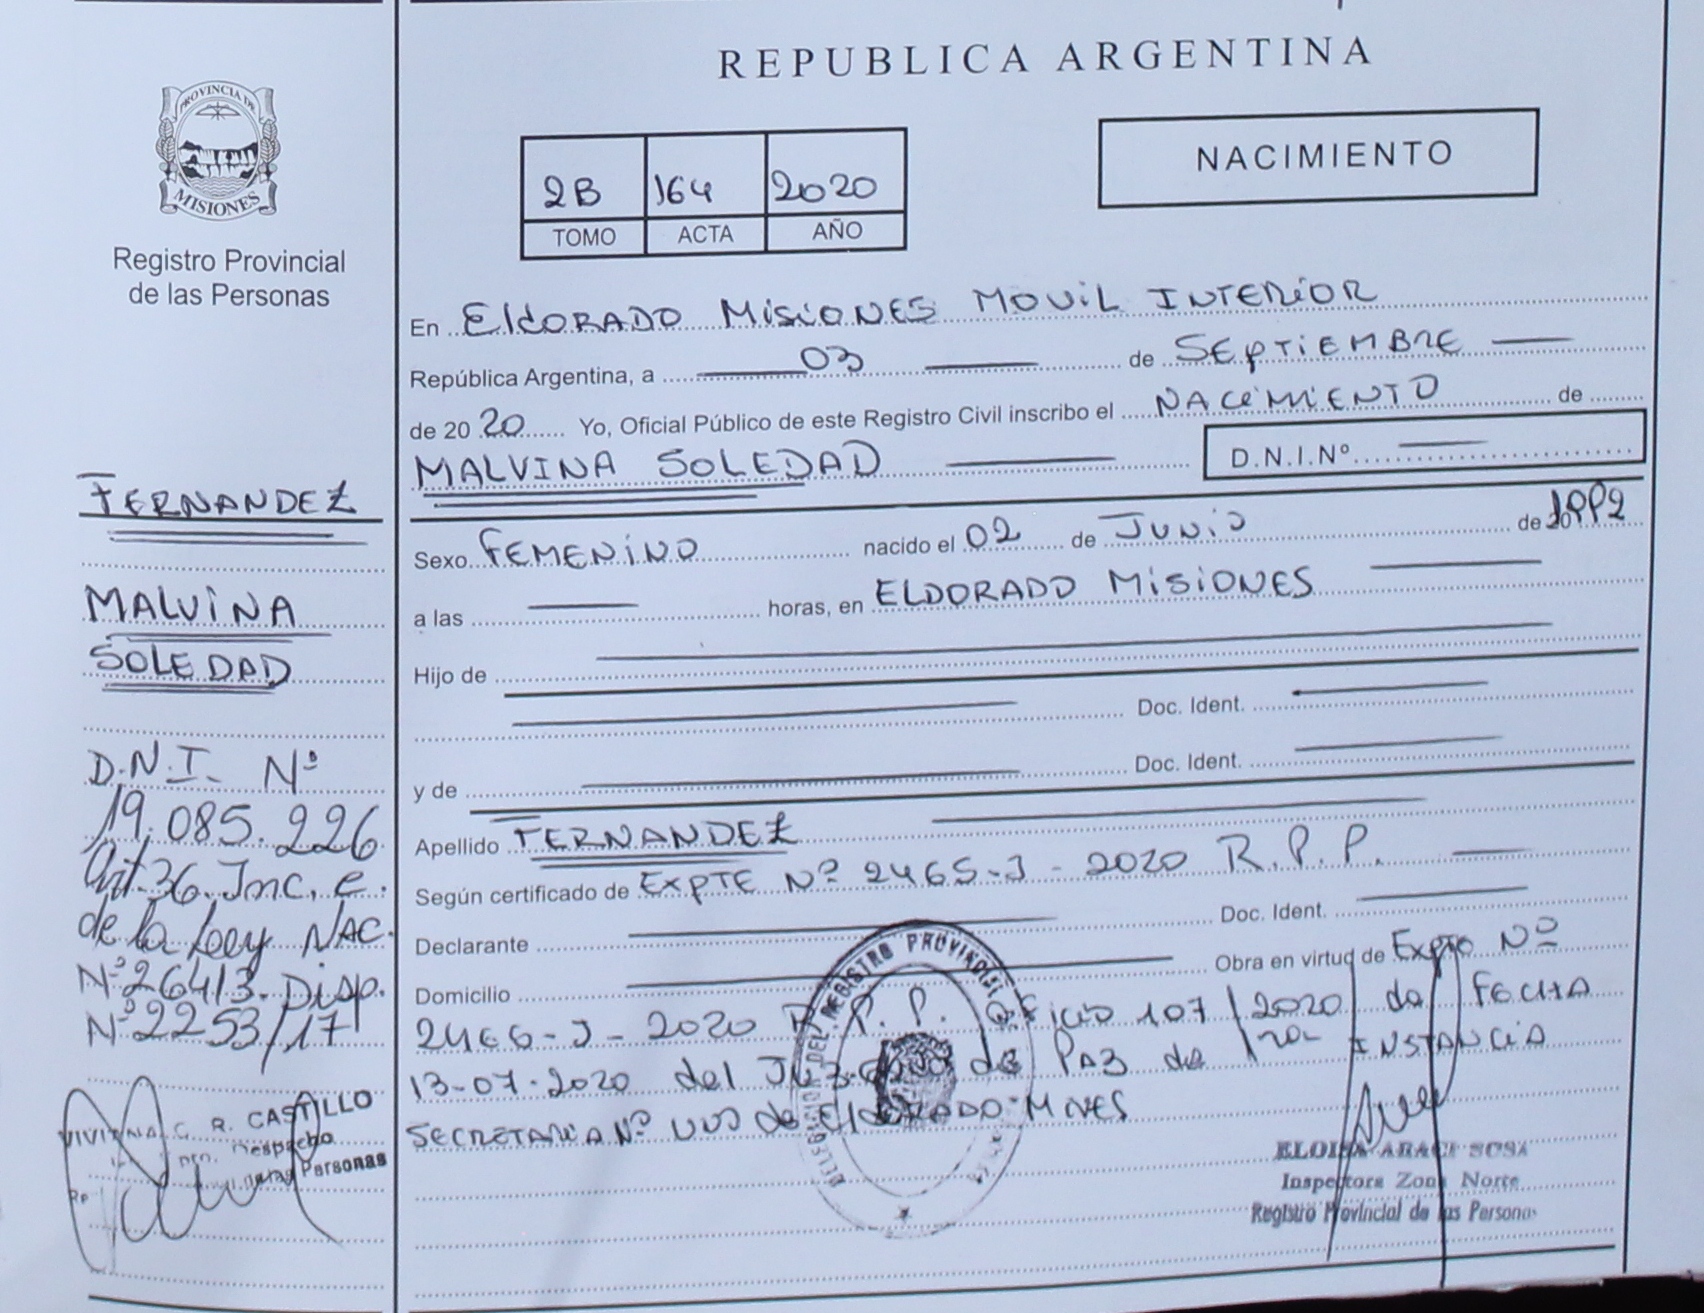 REPUBLICA ARGENTINA
PROVINCIA DE
MISIONES
Registro Provincial
de las Personas
NACIMIENTO
2B 164 2020
TOMO ACTA AÑO
En ELdORADO MISIONES MOVIL INTERIOR
República Argentina, a 03 de SEPTIEMBRE
de 20 20 Yo, Oficial Público de este Registro Civil inscribo el NACIMIENTO de
MALVINA SOLEDAD D.N.I.Nº
Sexo FEMENINO nacido el 02 de JUNIO de 1992
a las horas, en ELDORADO MISIONES
Hijo de
Doc. Ident.
y de Doc. Ident.
Apellido FERNANDEZ
Según certificado de EXPTE Nº 2465-J-2020 R.P.P.
Declarante Doc. Ident.
Domicilio Obra en virtud de Expto Nº
2466-J-2020 R.P.P. Oficio 107/2020 de FECHA
13-07-2020 del de PAZ de INSTANCIA
SECRETARIA Nº UNO de ELdORADO-MNES
REGISTRO PROVINCIAL
ELOISA ARACI SOSA
Inspectora Zona Norte
Registro Provincial de las Personas
FERNANDEZ
MALVINA
SOLEDAD
D.N.I. Nº
19.085.226
Art. 36. Inc. e.
de la Ley NAC.
Nº 26413. Disp.
Nº 2253/17
VIVIANA C. R. CASTILLO
Despacho
Personas